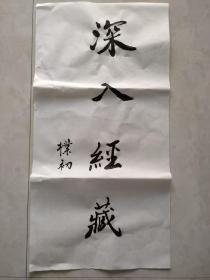 深入經藏
樸初